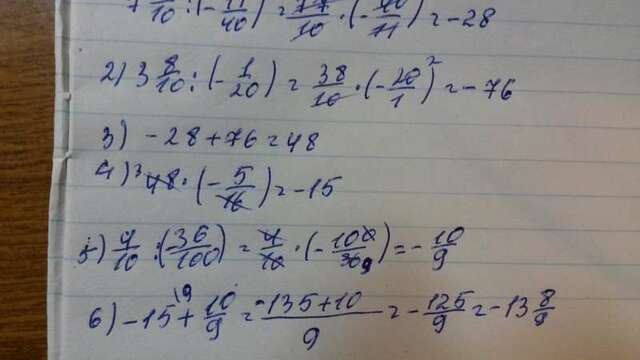 7 7/10 : (- 11/40) = 77/10 · (- 40/11) = -28
2) 3 8/10 : (- 1/20) = 38/10 · (- 20/1)² = -76
3) -28+76=48
4) ³48 · (- 5/16) = -15
5) 4/10 : (36/100) = 4/10 · (- 100/36 9) = - 10/9
6) -15 \9 + 10/9 = -135+10/9 = - 125/9 = -13 8/9